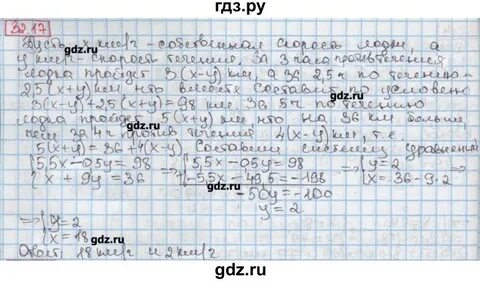 гдз.ру
32.17
Пусть x км/ч - собственная скорость лодки, а
y км/ч - скорость течения. За 3 часа против течения
лодка пройдет 3(x-y) км, а за 2,5 ч по течению -
2,5(x+y) км, что вместе составит по условию
3(x-y)+2,5(x+y)=98 км. За 5 ч по течению
лодка пройдет 5(x+y) км, что на 36 км больше,
чем за 4 ч против течения 4(x-y) км, т.е.
5(x+y)=36+4(x-y). Составим систему уравнений:
{5,5x-0,5y=98 => {5,5x-0,5y=98 => {y=2
{x+9y=36 {-5,5x-49,5=-198 {x=36-9·2
-50y=-100
y=2
=> {y=2
{x=18
Ответ: 18 км/ч и 2 км/ч
gdz.ru
gdz.ru
gdz.ru
gdz.ru
gdz.ru